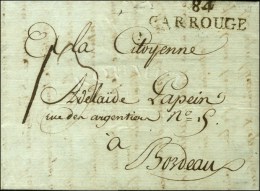 84
CARROUGE
A La Citoyenne
Adelaïde Lapein
rue des argentiers N.º 5.
à
Bordeau